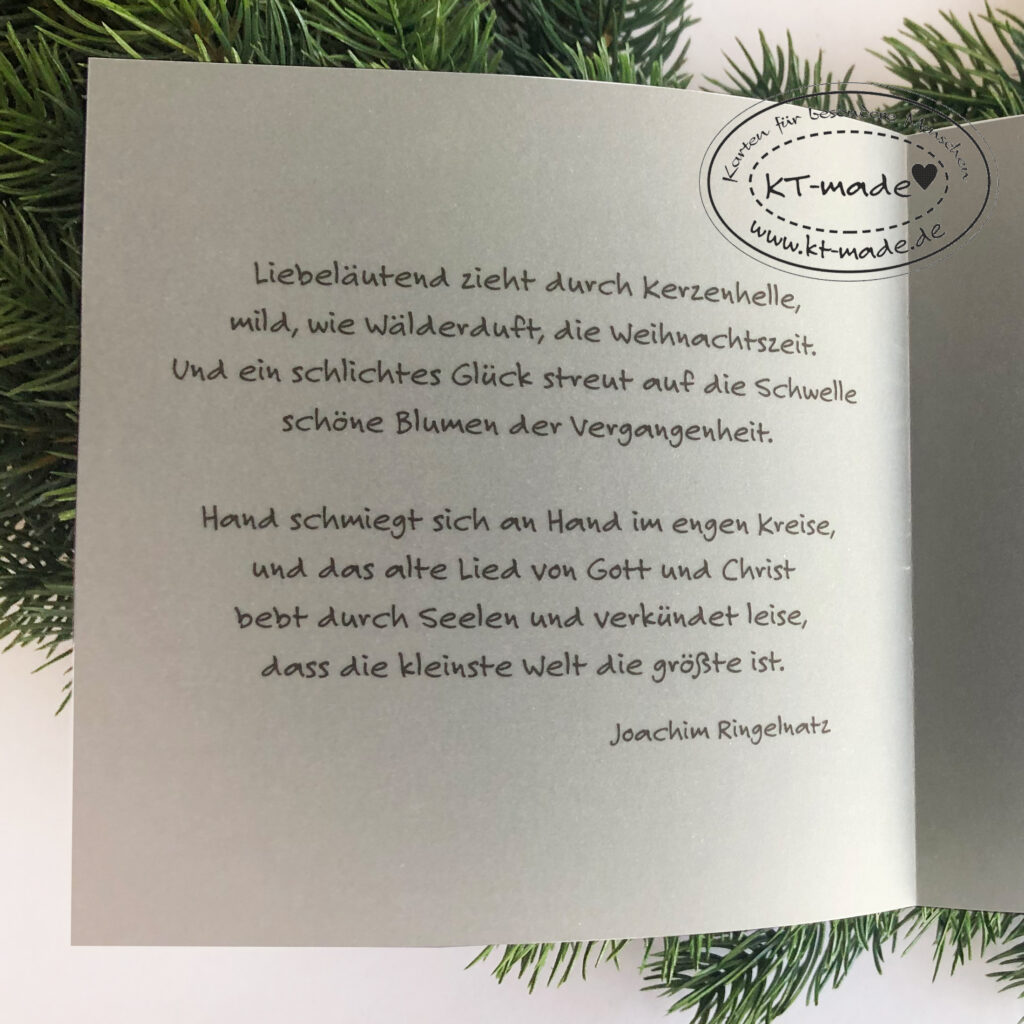 Karten für besondere Menschen
KT-made
www.kt-made.de
Liebeläutend zieht durch Kerzenhelle,
mild, wie Wälderduft, die Weihnachtszeit.
Und ein schlichtes Glück streut auf die Schwelle
schöne Blumen der Vergangenheit.
Hand schmiegt sich an Hand im engen Kreise,
und das alte Lied von Gott und Christ
bebt durch Seelen und verkündet leise,
dass die kleinste Welt die größte ist.
Joachim Ringelnatz